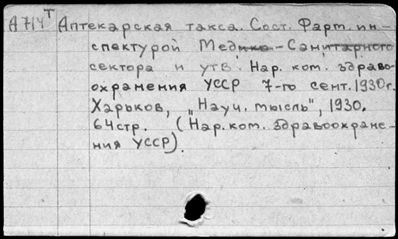 А714Т Аптекарская такса. Сост. Фарт. ин-
спектурой Медико-Санитарного
сектора и утв. Нар. ком. здраво-
охранения УССР 7-го сент. 1930г.
Харьков, „Науч. мысль", 1930.
64стр. (Нар. ком. здравоохране-
ния УССР).